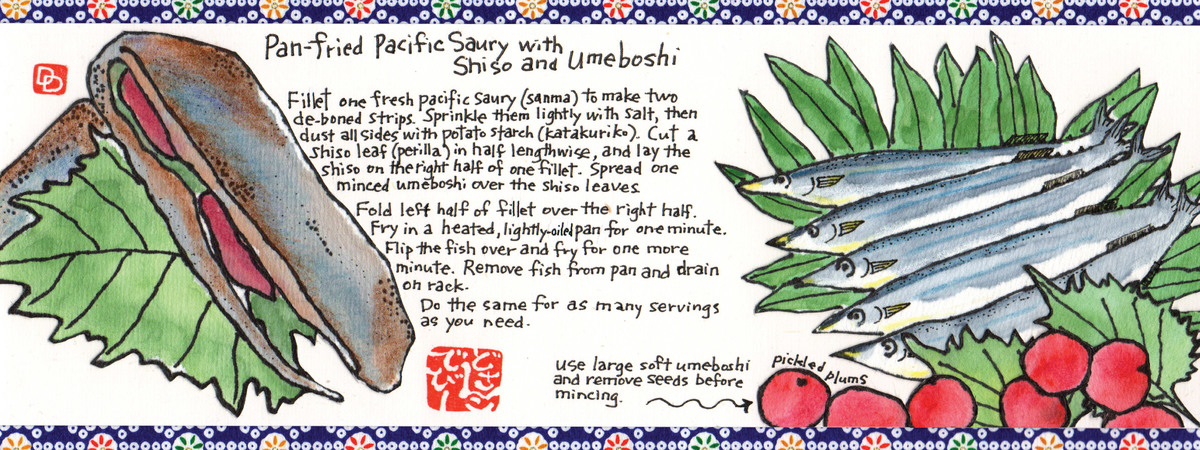 Pan-fried Pacific Saury with
Shiso and Umeboshi
Fillet one fresh pacific saury (sanma) to make two
de-boned strips. Sprinkle them lightly with salt, then
dust all sides with potato starch (katakuriko). Cut a
shiso leaf (perilla) in half lengthwise, and lay the
shiso on the right half of one fillet. Spread one
minced umeboshi over the shiso leaves
Fold left half of fillet over the right half.
Fry in a heated, lightly-oiled pan for one minute.
Flip the fish over and fry for one more
minute. Remove fish from pan and drain
on rack.
Do the same for as many servings
as you need.
use large soft umeboshi
and remove seeds before
mincing.
pickled plums